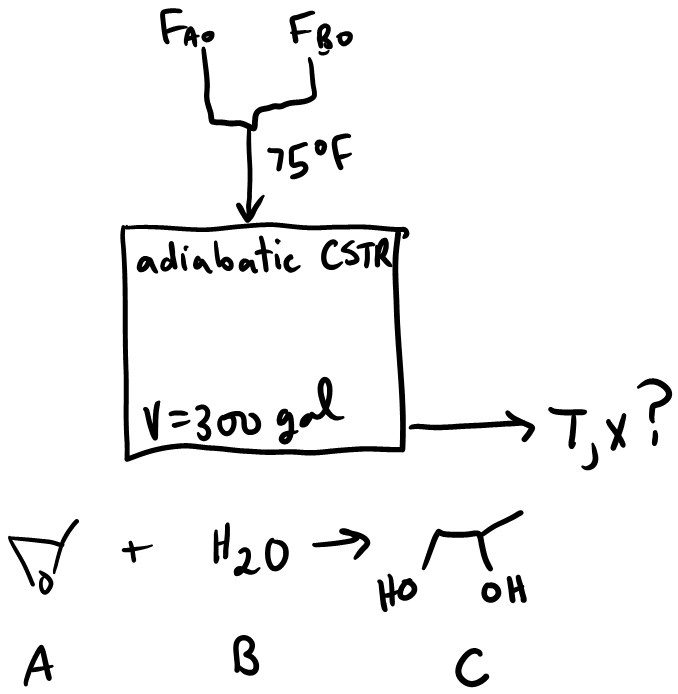 F_A0 F_B0
75°F
adiabatic CSTR
V=300 gal
T, x?
O + H2O → HO OH
A B C